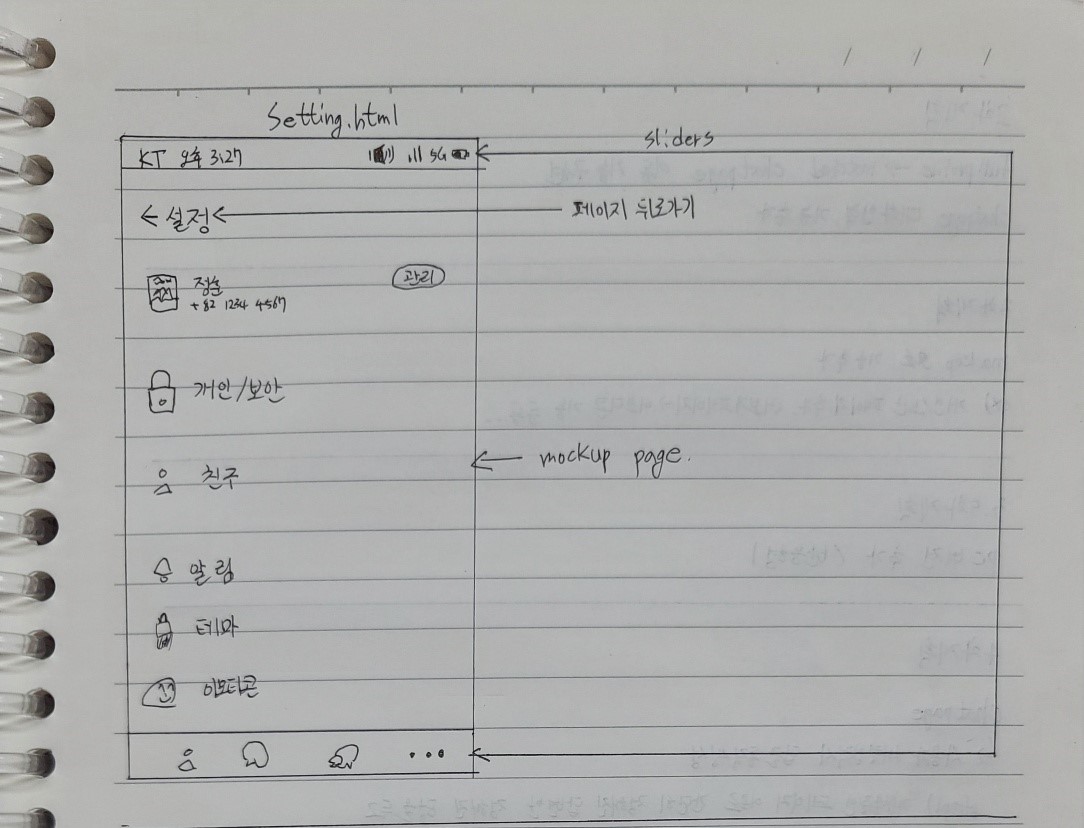 Setting.html
sliders
KT 오후 3:27 5G
← 설정 ← 페이지 뒤로가기
정훈 관리
+82 1234 4567
개인/보안
← mockup page.
친구
알림
테마
이모티콘
...